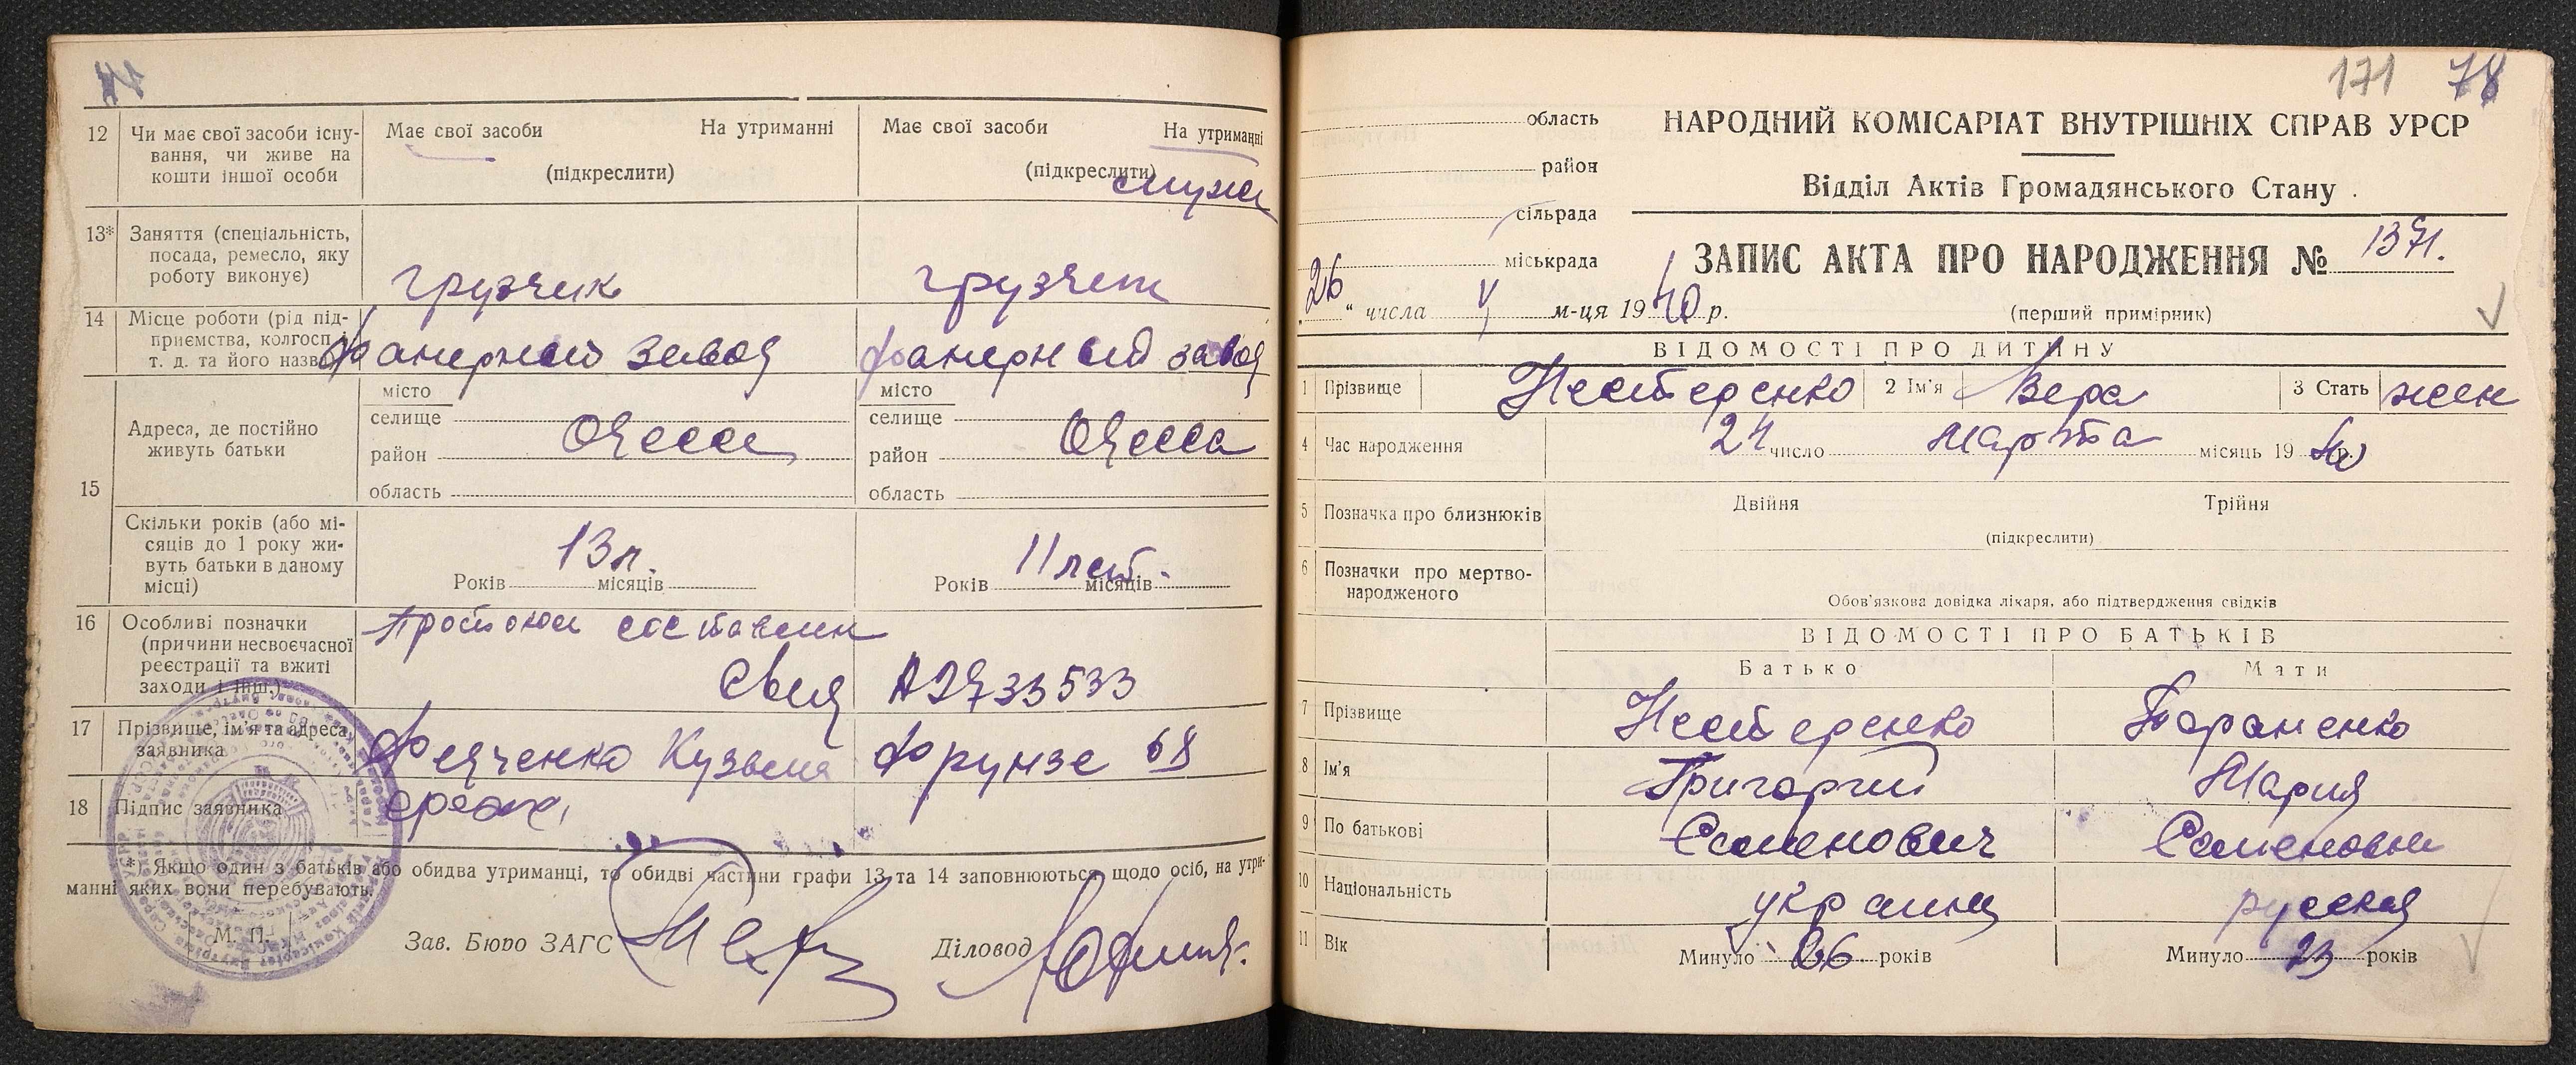 12 Чи має свої засоби існу-
вання, чи живе на
кошти іншої особи
Має свої засоби На утриманні
(підкреслити)
Має свої засоби На утриманні
(підкреслити)
мужа
13* Заняття (спеціальність,
посада, ремесло, яку
роботу виконує)
грузчик грузчик
14 Місце роботи (рід під-
приємства, колгосп і
т. д. та його назва)
фанерный завод фанерный завод
15 Адреса, де постійно
живуть батьки
місто
селище
район
область
Одесса
місто
селище
район
область
Одесса
Скільки років (або мі-
сяців до 1 року жи-
вуть батьки в даному
місці)
13 л.
Років місяців
11 лет.
Років місяців
16 Особливі позначки
(причини несвоєчасної
реєстрації та вжиті
заходи і інш.)
Протокол составлен
Свид А29733533
17 Прізвище, ім'я та адреса
заявника
Федченко Кузьма Фрунзе 68
18 Підпис заявника
*) Якщо один з батьків або обидва утриманці, то обидві частини графи 13 та 14 заповнюються щодо осіб, на утри-
манні яких вони перебувають.
М. П.
Зав. Бюро ЗАГС Діловод
171 78
область
район
сільрада
міськрада
НАРОДНИЙ КОМІСАРІАТ ВНУТРІШНІХ СПРАВ УРСР
Відділ Актів Громадянського Стану
ЗАПИС АКТА ПРО НАРОДЖЕННЯ № 1371.
„26“ числа V м-ця 1940 р.
(перший примірник)
ВІДОМОСТІ ПРО ДИТИНУ
1 Прізвище Нестеренко 2 Ім'я Вера 3 Стать жен
4 Час народження 24 число Марта місяць 1940 р.
5 Позначка про близнюків Двійня Трійня
(підкреслити)
6 Позначки про мертво-
народженого
Обов'язкова довідка лікаря, або підтвердження свідків
ВІДОМОСТІ ПРО БАТЬКІВ
Батько Мати
7 Прізвище Нестеренко Тараненко
8 Ім'я Григорий Мария
9 По батькові Семенович Семеновна
10 Національність украинец русская
11 Вік Минуло 26 років Минуло 23 років